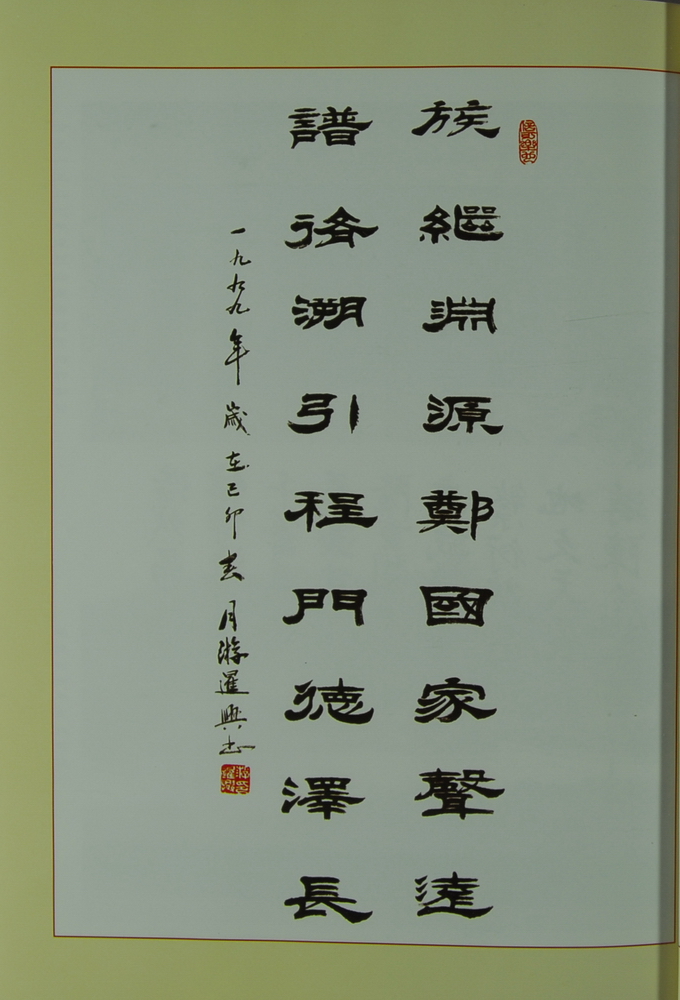 族繼淵源鄭國家聲遠
譜溯引程門德澤長
一九九九年歲在己卯春月游暹興书